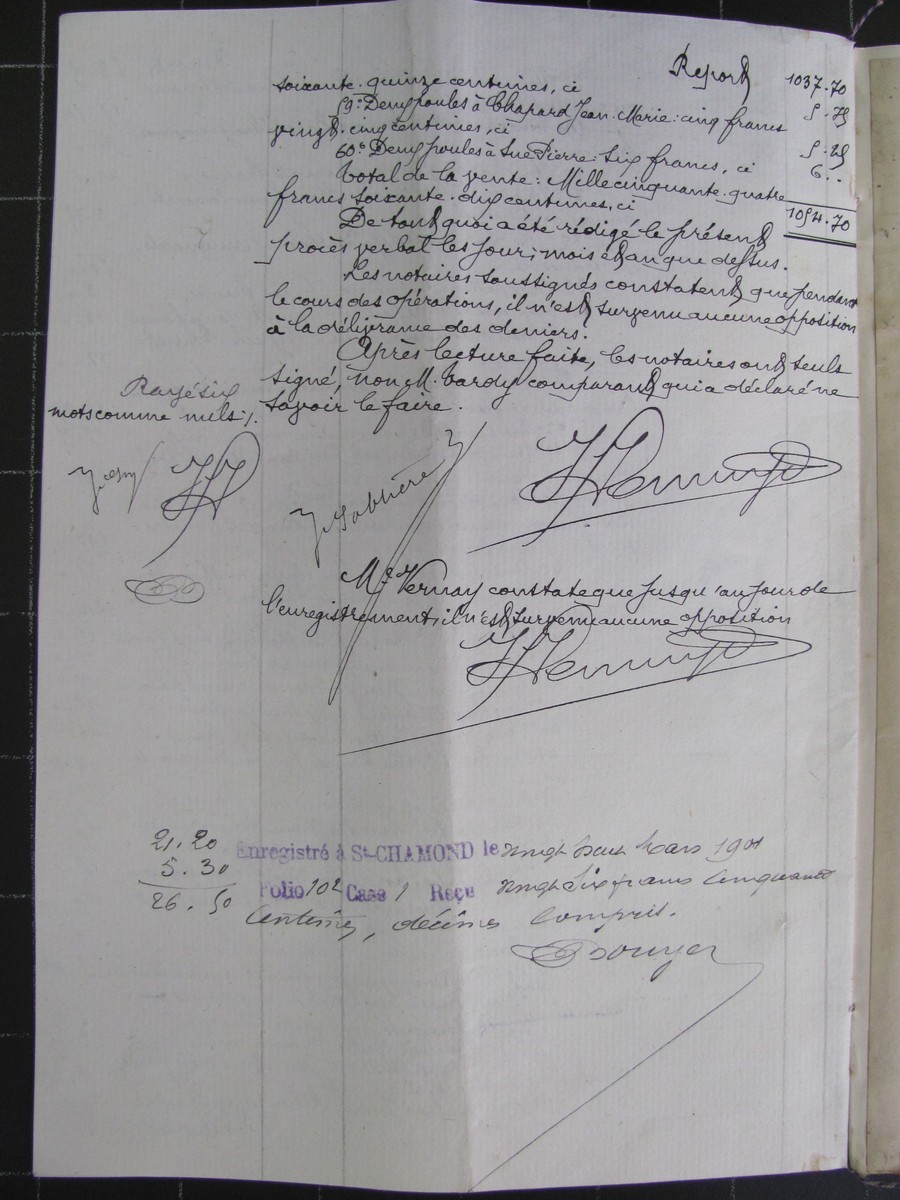 Report 1037.70
soixante-quinze centimes, ci 5.75
59° Deux poules à Chapard Jean-Marie: cinq francs
vingt-cinq centimes, ci 5.25
60° Deux poules à Sue Pierre: six francs, ci 6..
Total de la vente: Mille cinquante-quatre
francs soixante-dix centimes, ci 1054.70
De tout quoi a été rédigé le présent
procès verbal les jour, mois et an que dessus.
Les notaires soussignés constatent que pendant
le cours des opérations, il n'est survenu aucune opposition
à la délivrance des deniers.
Après lecture faite, les notaires ont seuls
signé, non M. Tardy comparant qui a déclaré ne
savoir le faire.
Rayé six
mots comme nuls ./.
Me Vernay constate que jusqu'au jour de
l'enregistrement, il n'est survenu aucune opposition
21.20
5.30
26.50
Enregistré à St-CHAMOND le vingt Mars 1901
Folio 102 Case 1 Reçu vingt six francs cinquante
centimes, décimes compris.